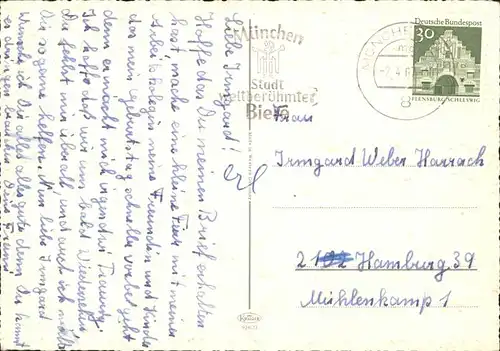 Liebe Irmgard!
Hoffe das Du meinen Brief erhalten
hast mache eine kleine Feier mit meinen
Arbeitskolegin meine Freundin und Kinder
das mein Geburtstag schneller vorbei geht
denn er macht mich irgendwie Traurig
Ich hoffe daß wir uns bald Wiedersehen
Du fehlst mir überall und auch ich
Dir so gerne helfen. Nun liebe Irmgard
wünsche ich Dir alles alles gute denn Du kannst
es Deine
München
Stadt
weltberühmter
Biere
MÜNCHEN
8
Deutsche Bundespost
30
FLENSBURG/SCHLESWIG
Frau
Irmgard Weber Harrach
2 Hamburg 39
Mühlenkamp 1
Krüger